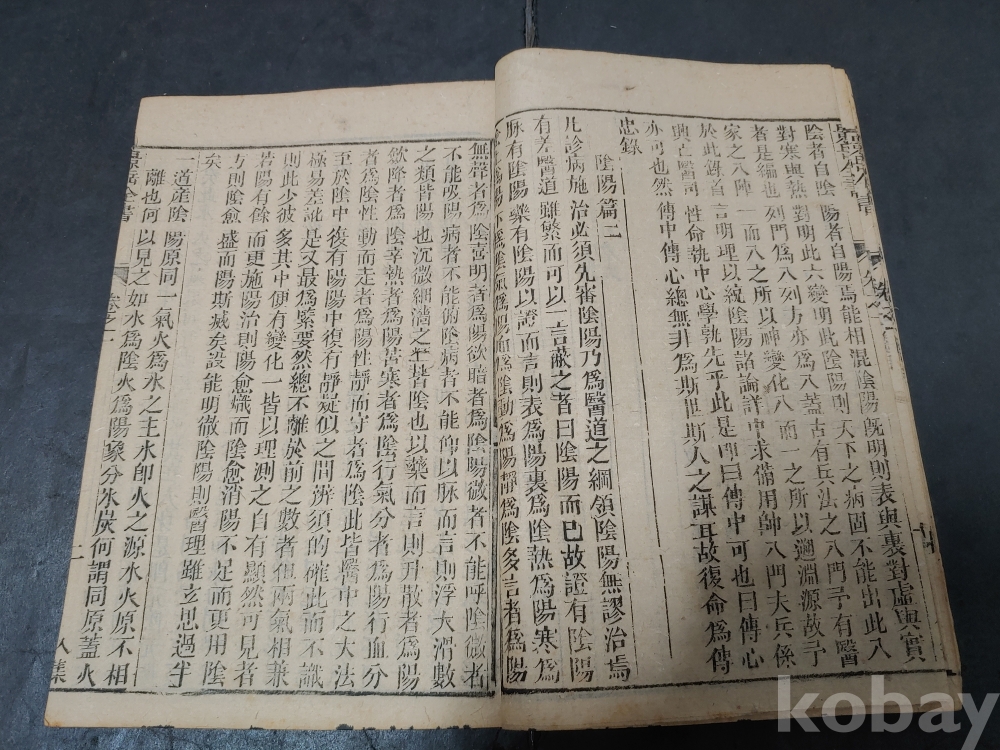 景岳全書 卷之一
陰者自陰陽者自陽焉能相混陰陽旣明則表與裏對虛與實
對寒與熱對明此六變明此陰陽則天下之病固不能出此八
者是編也列門爲八列方亦爲八蓋古有兵法之八門予有醫
家之八陣一而八之所以神變化八而一之所以遡淵源故予
於此錄首言明理以統陰陽諸論詳中求備用帥八門夫兵係
興亡醫司性命執中心學孰先乎此是即曰傳中可也曰傳心
亦可也然傳中傳心總無非爲斯世斯人之謀耳故復命爲傳
忠錄
陰陽篇二
凡診病施治必須先審陰陽乃爲醫道之綱領陰陽無謬治焉
有差醫道雖繁而可以一言蔽之者曰陰陽而已故證有陰陽
脉有陰陽藥有陰陽以證而言則表爲陽裏爲陰熱爲陽寒爲
陽靜爲陰多言者爲陽
無聲者爲陰喜明者爲陽欲暗者爲陰陽微者不能呼陰微者
不能吸陽病者不能俯陰病者不能仰以脉而言則浮大滑數
之類皆陽也沉微細濇之類皆陰也以藥而言則升散者爲陽
歛降者爲陰辛熱者爲陽苦寒者爲陰行氣分者爲陽行血分
者爲陰性動而走者爲陽性靜而守者爲陰此皆醫中之大法
至於陰中復有陽陽中復有靜疑似之間辨須的確此而不識
極易差訛是又最爲緊要然總不離於前之數者但兩氣相兼
則此少彼多其中便有變化一皆以理測之自有顯然可見者
若陽有餘而更施陽治則陽愈熾而陰愈消陽不足而更用陰
方則陰愈盛而陽斯滅矣設能明徹陰陽則醫理雖玄思過半
矣
一道產陰陽原同一氣火爲水之主水即火之源水火原不相
離也何以見之如水爲陰火爲陽象分氷炭何謂同原蓋火
景岳全書 卷之一 二 入集
kobay